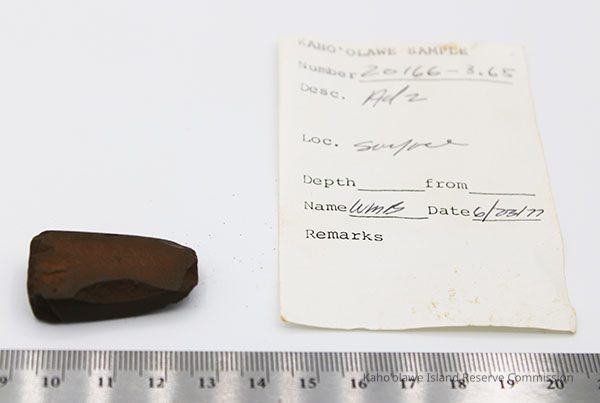 KAHO'OLAWE SAMPLE
Number 20166-3.65
Desc. Adz
Loc. Surface
Depth from
Name WMB Date 6/23/77
Remarks
9 10 11 12 13 14 15 16 17 18 19 20
Kaho'olawe Island Reserve Commission